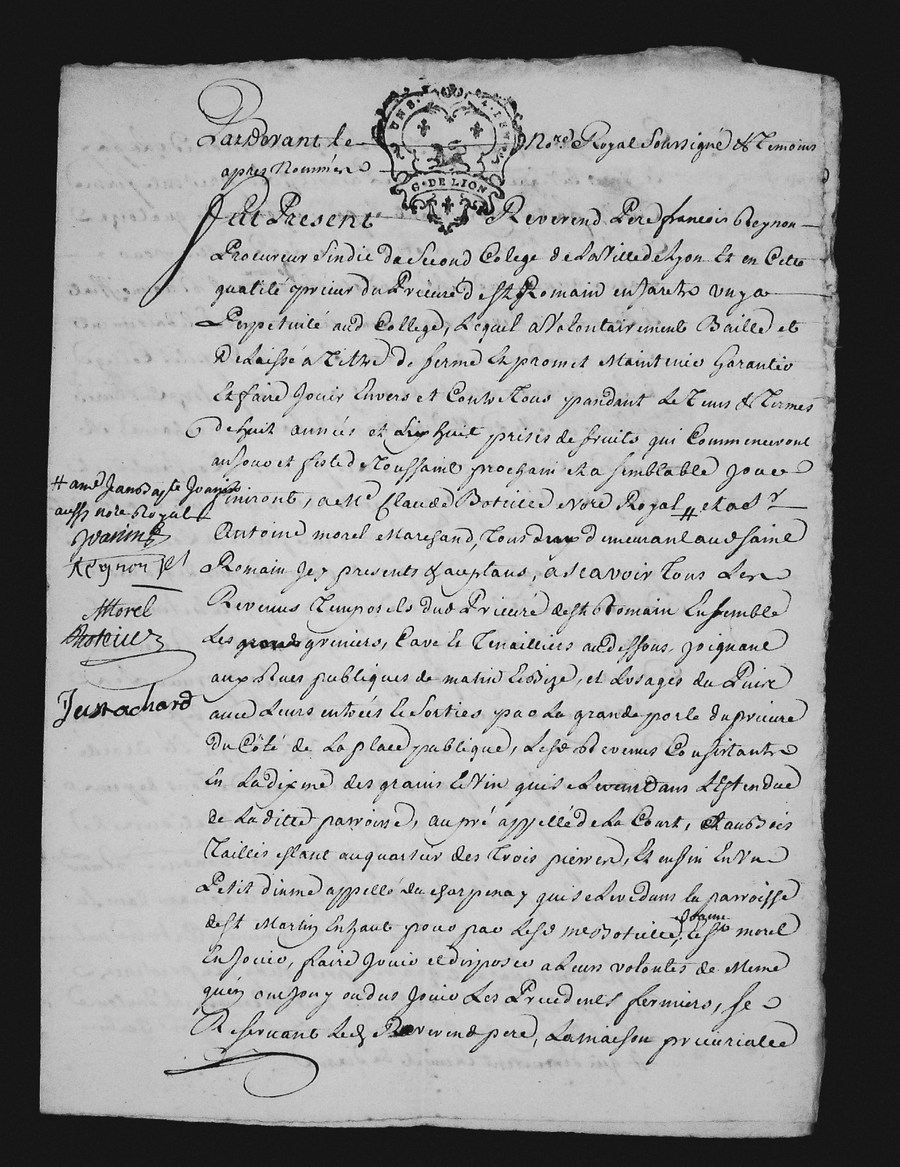 Pardevant le Nore Royal Soussigné & Temoins
apres Nommés
UNS. 4. D.
G. DE LION
Fut Present Reverend Pere francois Reynon
Procureur Sindic du Second Colege de La Ville de Lyon Et en Cette
qualité prieur du Prieuré de St Romain en Jaretz unya
Perpetuité aud College, Lequel a Volontairement Baillé et
Delaissé a Titre de ferme Et promet Maintenir Garantir
Et faire Jouir Envers et Contre Tous pandant Le Tems & Termes
de huit années et huit prises de fruits qui Commenceront
au jour et feste d Toussaint prochain et a semblable jour
finiront, a Me Claude Boteille Nore Royal # et a Sr
Antoine morel Marchand, Tous deux demeurant aud Saint
Romain Icy presents & aceptans, a scavoir Tous Les
Revenus Temporels dud Prieuré de St Romain Ensemble
Les greniers, Cave Et Tenailliers au dessous, joignant
aux Rues publiques de matin Et Bize, et Lusages du Puits
avec Leurs entrées Et Sorties par La grande porte du prieure
du Côté de La place publique, Lesd Revenus Consistants
En La dixme des grains Et Vin qui se Leve dans L'Estendue
de Laditte parroisse, au pré appellé de La Court, Et au Bois
Taillis estant au quartier des Trois pierres, Et enfin En Un
Petit dixme appellé du Charpenay qui se Leve dans la parroisse
de St Martin En haut pour par Lesd me Boteille, Joanin Et Sr morel
En Jouir, faire Jouir et disposer a Leurs volontés de Meme
qu'en ont Jouy ou dus Jouir Les Precedents fermiers, se
Reservant Led Reverend pere, La maison prieuriale
# a me Jean Bapte Joanin
aussy nore Royal
Joanin
Reynon
AMorel
Boteille
Jeustachard